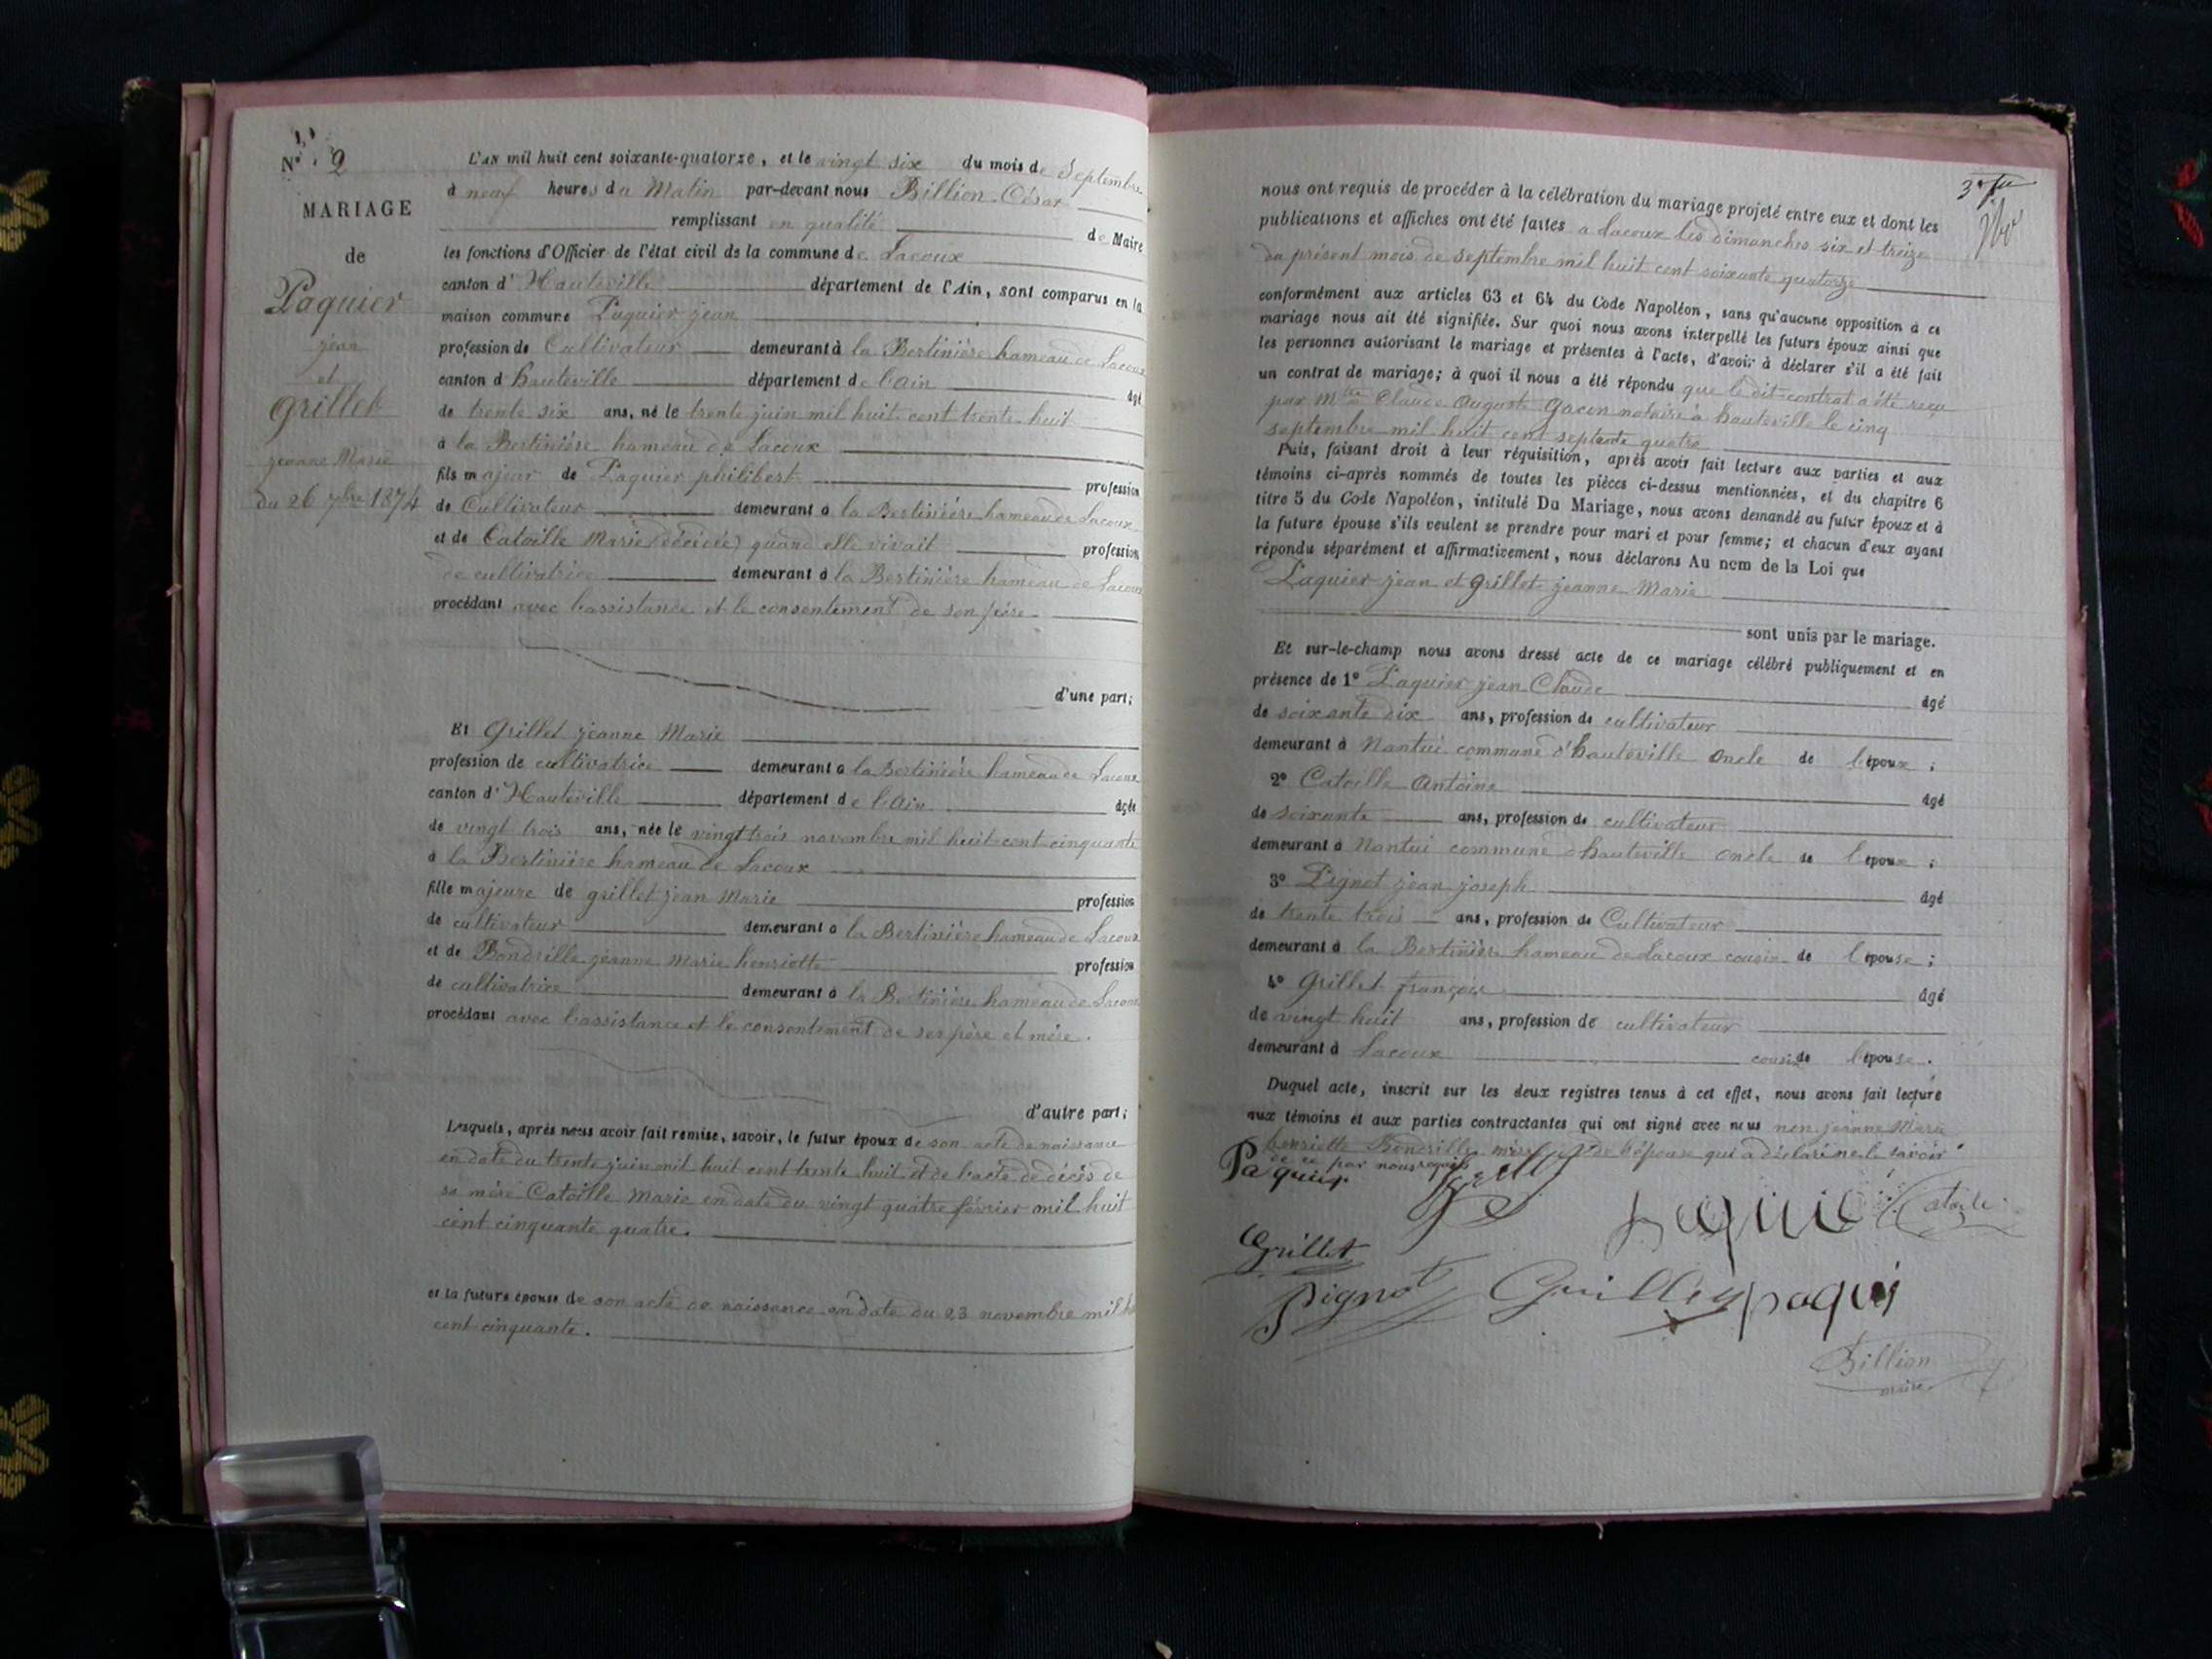 N° 2
MARIAGE
de
Paquier
jean
et
Grillet
jeanne Marie
du 26 7bre 1874
L'AN mil huit cent soixante-quatorze, et le vingt six du mois de Septembre
à neuf heures du Matin par-devant nous Billion César
remplissant en qualité de Maire
les fonctions d'Officier de l'état civil de la commune de Lacoux
canton d'Hauteville département de l'Ain, sont comparus en la
maison commune Paquier jean
profession de Cultivateur demeurant à la Bertinière hameau de Lacoux
canton d'hauteville département de l'Ain âgé
de trente six ans, né le trente juin mil huit cent trente huit
à la Bertinière hameau de Lacoux
fils majeur de Paquier philibert profession
de Cultivateur demeurant à la Bertinière hameau de Lacoux
et de Catoille Marie (décédée) quand elle vivait profession
de cultivatrice demeurant à la Bertinière hameau de Lacoux
procédant avec l'assistance et le consentement de son père
d'une part;
Et Grillet jeanne Marie
profession de cultivatrice demeurant à la Bertinière hameau de Lacoux
canton d'Hauteville département de l'Ain âgée
de vingt trois ans, née le vingt trois novembre mil huit cent cinquante
à la Bertinière hameau de Lacoux
fille majeure de grillet jean Marie profession
de cultivateur demeurant à la Bertinière hameau de Lacoux
et de Bondrille jeanne Marie henriette profession
de cultivatrice demeurant à la Bertinière hameau de Lacoux
procédant avec l'assistance et le consentement de ses père et mère.
d'autre part;
Lesquels, après nous avoir fait remise, savoir, le futur époux de son acte de naissance
en date du trente juin mil huit cent trente huit et de l'acte de décès de
sa mère Catoille Marie en date du vingt quatre février mil huit
cent cinquante quatre.
et la future épouse de son acte de naissance en date du 23 novembre mil
cent cinquante.
nous ont requis de procéder à la célébration du mariage projeté entre eux et dont les
publications et affiches ont été faites a Lacoux les dimanches six et treize
du présent mois de septembre mil huit cent soixante quatorze
conformément aux articles 63 et 64 du Code Napoléon, sans qu'aucune opposition à ce
mariage nous ait été signifiée. Sur quoi nous avons interpellé les futurs époux ainsi que
les personnes autorisant le mariage et présentes à l'acte, d'avoir à déclarer s'il a été fait
un contrat de mariage; à quoi il nous a été répondu que le dit contrat a été reçu
par Mtre Claude Auguste Gacon notaire à hauteville le cinq
septembre mil huit cent septante quatre
Puis, faisant droit à leur réquisition, après avoir fait lecture aux parties et aux
témoins ci-après nommés de toutes les pièces ci-dessus mentionnées, et du chapitre 6
titre 5 du Code Napoléon, intitulé Du Mariage, nous avons demandé au futur époux et à
la future épouse s'ils veulent se prendre pour mari et pour femme; et chacun d'eux ayant
répondu séparément et affirmativement, nous déclarons Au nom de la Loi que
Paquier jean et Grillet jeanne Marie
sont unis par le mariage.
Et sur-le-champ nous avons dressé acte de ce mariage célébré publiquement et en
présence de 1° Paquier jean Claude âgé
de soixante dix ans, profession de cultivateur
demeurant à Nantui commune d'hauteville oncle de l'époux;
2° Catoille Antoine âgé
de soixante ans, profession de cultivateur
demeurant à Nantui commune d'hauteville oncle de l'époux;
3° Pignot jean joseph âgé
de trente trois ans, profession de Cultivateur
demeurant à la Bertinière hameau de Lacoux cousin de l'épouse;
4° Grillet françois âgé
de vingt huit ans, profession de cultivateur
demeurant à Lacoux cousin de l'épouse.
Duquel acte, inscrit sur les deux registres tenus à cet effet, nous avons fait lecture
aux témoins et aux parties contractantes qui ont signé avec nous non jeanne Marie
henriette Bondrille mère de l'épouse qui a déclaré ne le savoir
de ce par nous requis
Paquier
Catoille
Grillet
Pignot Grillet paqui
Billion
maire